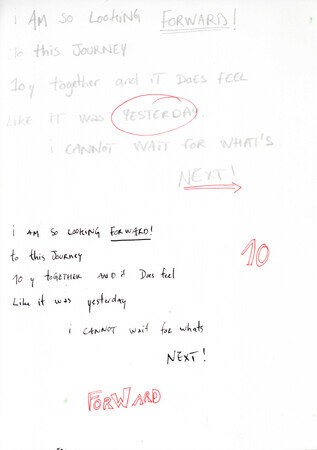 i AM SO LOOKING FORWARD!
to this JOURNEY
10 y together and iT DOES FEEL
LIKE IT WAS YESTERDAY.
i CANNOT WAIT FOR WHAT'S
NEXT!
i AM SO LOOKING FORWARD!
to this JOURNEY
10 y toGETHER AND it Does feel
Like it was yesterday
i CANNOT wait for whats
NEXT!
10
FORWARD